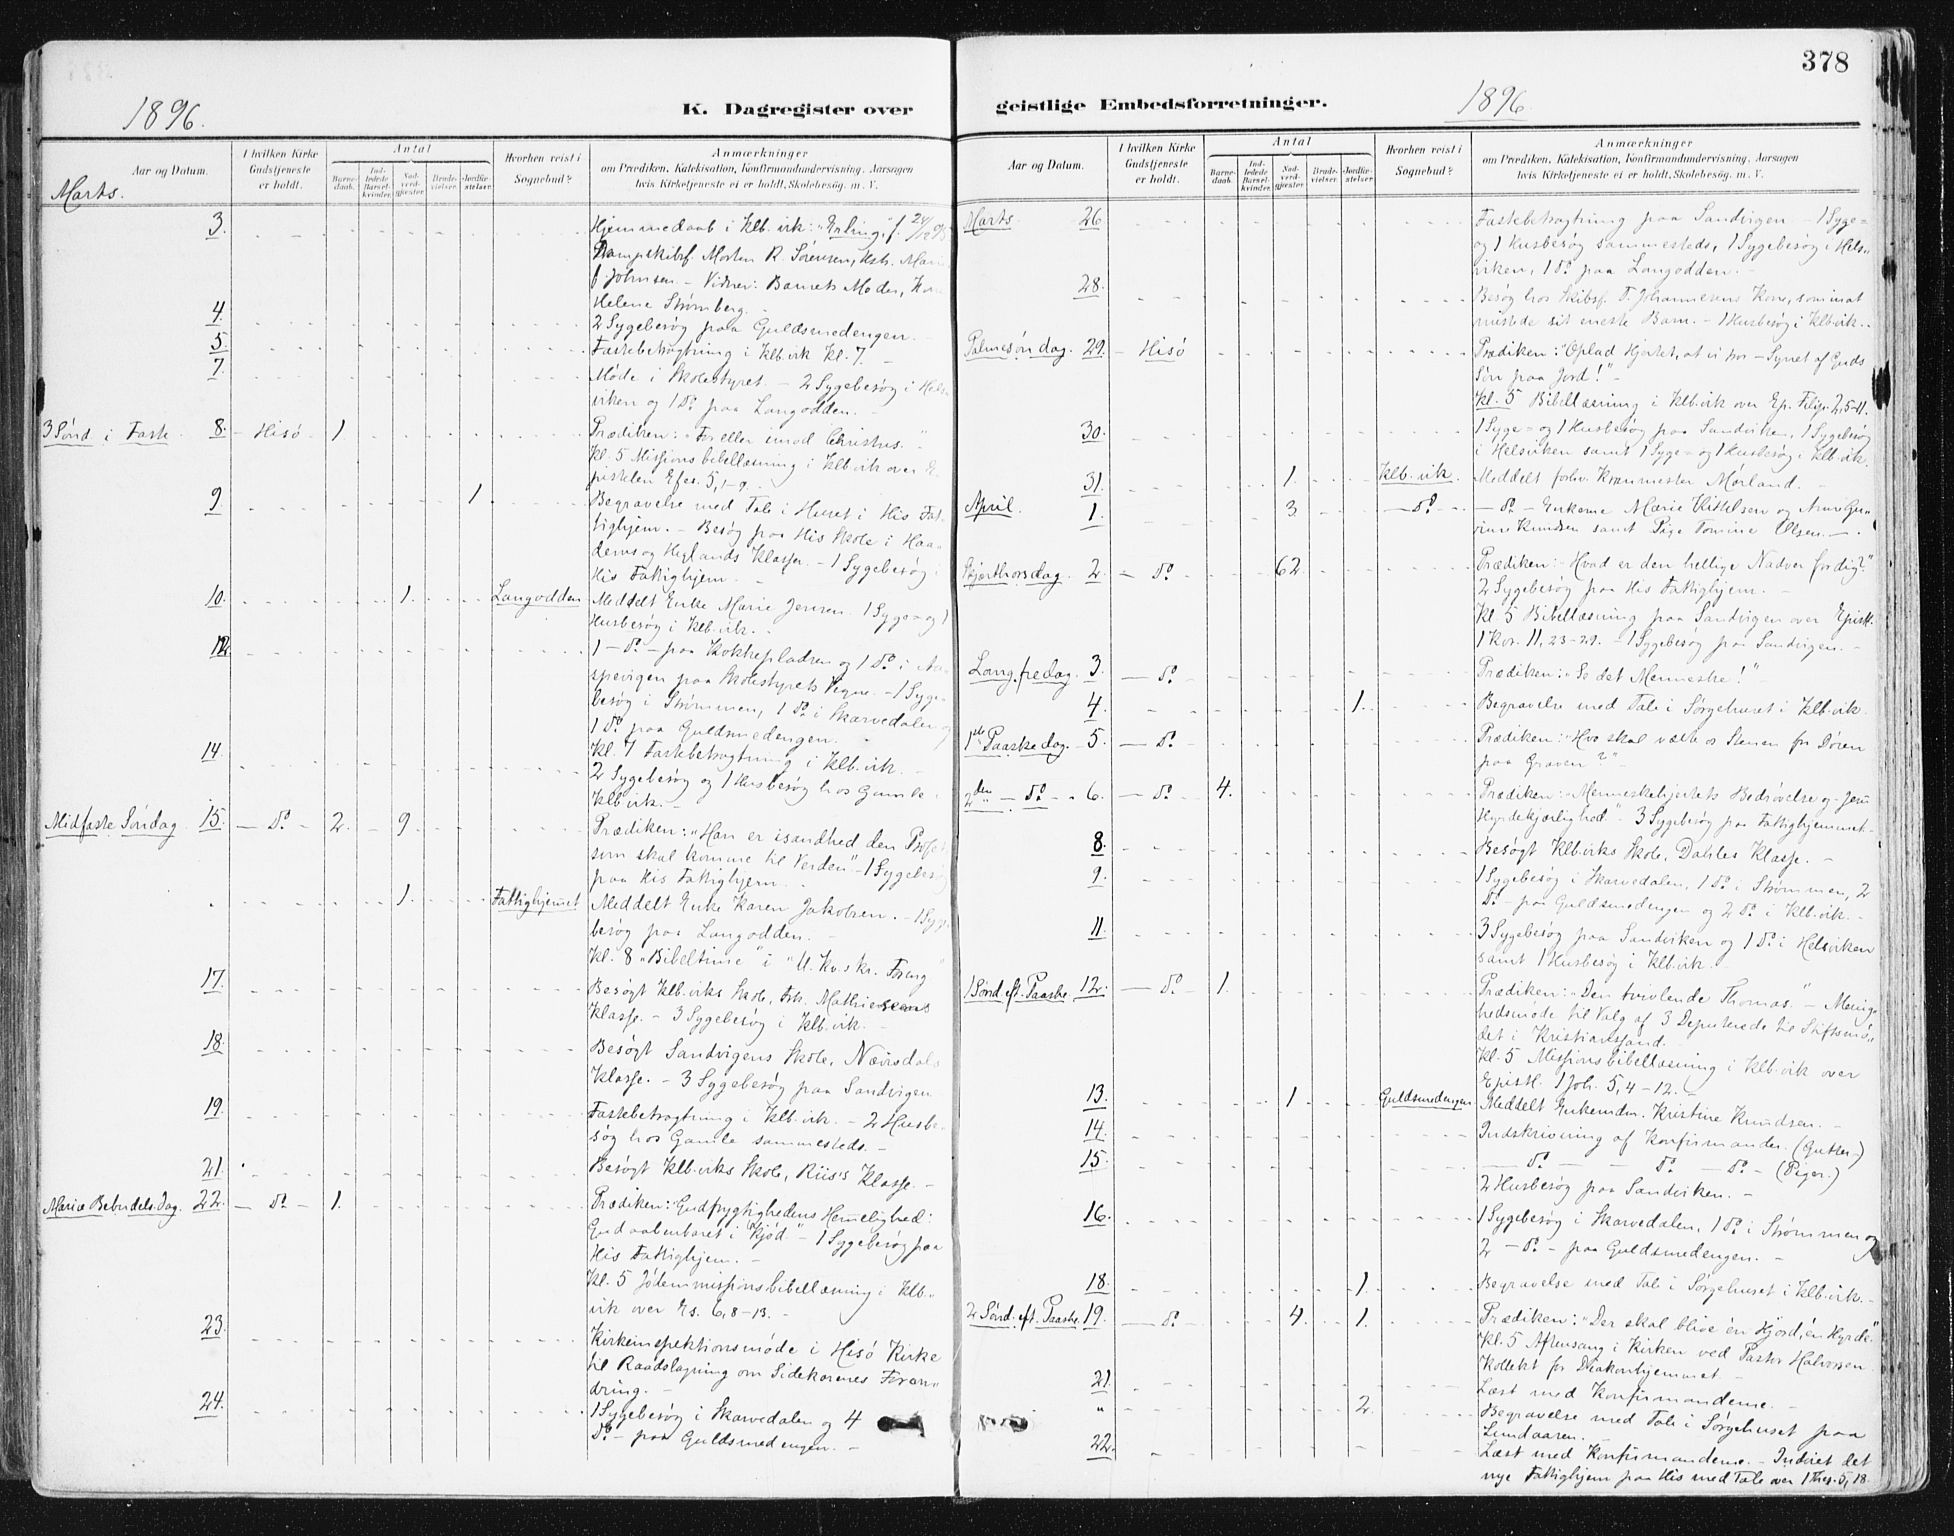 378
1896.
K. Dagregister over
geistlige Embedsforretninger.
1896.
Aar og Datum.
I hvilken Kirke Gudstjeneste er holdt.
Antal
Barnedaab.
Indledede Barselkvinder.
Nadverdgjester.
Brudevielser.
Jordfæstelser.
Hvorhen reist i Sognebud?
Anmærkninger
om Prædiken, Katekisation, Konfirmandundervisning, Aarsagen
hvis Kirketjeneste ei er holdt, Skolebesøg, m. V.
Marts.
3. Hjemmedaab i Klb.vik: "Erling", f. 24/12 95
Dampskibsf. Morten R. Sörensen, Hstr. Marie
f. Johnsen – Vidner: Barnets Moder, Kone
Helene Strömberg. –
4. 2 Sygebesög paa Guldsmedengen. –
5. Fastebetragtning i Klb.vik Kl. 7. –
7. Möde i Skolestyret. – 2 Sygebesög i Hels-
viken og 1 Do paa Langodden. –
3 Sönd i Faste. 8. – Hisö – 1 Prædiken: "For eller imod Christus."
Kl. 5 Missionsbibellæsning i Klb.vik over E-
pistelen Efes. 5, 1-9. –
9. 1. Begravelse med Tale i Huset i His Fat-
tighjem. – Besög paa His Skole i Haa-
dems og Heglands Klasse. – 1 Sygebesög i
His Fattighjem. –
10. 1. Langodden Meddelt Enke Marie Jensen. 1 Syge- og 1
Husbesög i Klb.vik. –
12. 1 – Do – paa Kokkepladsen og 1 Do i As-
pevigen paa Skolestyrets Vegne. – 1 Syge-
besög i Strömmen, 1 Do i Skarvedalen og
1 Do paa Guldsmedengen. –
14. Kl. 7 Fastebetragtning i Klb.vik. –
2 Sygebesög og 1 Husbesög hos Gamle.
Klb.vik. –
Midfaste Söndag 15. – Do – 2 – 9 Prædiken: "Han er isandhed den Profet
som skal komme til Verden" – 1 Sygebesög
paa His Fattighjem. –
1. Fattighjemmet Meddelt Enke Karen Jakobsen. – 1 Syge-
besög paa Langodden. –
Kl. 8 "Bibeltime" i "U. Kv. skr. Foreng"
17. Besögt Klb.viks Skole, Frk. Mathiesens
Klasse. – 3 Sygebesög i Klb.vik. –
18. Besögt Sandvigens Skole, Nævesdals
Klasse. – 3 Sygebesög paa Sandvigen.
19. Fastebetragtning i Klb.vik. – 2 Husbe-
sög hos Gamle sammesteds. –
21. Besögt Klb.viks Skole, Riis's Klasse. –
Mariæ Bebudels. Dag. 22. – Do – 1. Prædiken: "Gudfrygtighedens Hemmelighed:
Gud aabenbaret i Kjöd." – 1 Sygebesög paa
His Fattighjem. –
Kl. 5 Jödemissionsbibellæsning i Klb.-
vik over Es. 6, 8-13. –
23. Kirkeinspektionsmöde i Hisö Kirke
til Raadslagning om Sidekorenes Foran-
dring. –
24. 1 Sygebesög i Skarvedalen og 4
Do – paa Guldsmedengen. –
Aar og Datum.
I hvilken Kirke Gudstjeneste er holdt.
Antal
Barnedaab.
Indledede Barselkvinder.
Nadverdgjester.
Brudevielser.
Jordfæstelser.
Hvorhen reist i Sognebud?
Anmærkninger
om Prædiken, Katekisation, Konfirmandundervisning, Aarsagen
hvis Kirketjeneste ei er holdt, Skolebesøg, m. V.
Marts. 26. Fastebetragtning paa Sandvigen – 1 Syge-
og 1 Husbesög sammesteds, 1 Sygebesög i Hels-
viken, 1 Do paa Langodden. –
28. Besög hos Skibsf. T. Johannesens Kone, som inat
mistede sit eneste Barn. – 1 Husbesög i Klb.vik. –
Palmesöndag. 29. – Hisö Prædiken: "Oplad Hjertet, at vi tro – Synet af Guds
Sön paa Jord!" –
Kl. 5 Bibellæsning i Klb.vik over Ep. Filip. 2, 5-11.
30. 1 Syge- og 1 Husbesög paa Sandviken, 1 Sygebesög
i Helsviken samt 1 Syge- og 1 Husbesög i Klb.vik.
31. 1. Klb.vik. Meddelt forhv. Kranmester Mörland. –
April. 1. 3. – Do – – Do – Enkerne Marie Kittelsen og Anne Gu-
rine Knudsen samt Pige Tomine Olsen. –
Skjærthorsdag. 2. – Do. 62. Prædiken: "Hvad er den hellige Nadver for dig?"
2 Sygebesög paa His Fattighjem. –
Kl 5 Bibellæsning paa Sandvigen over Epistl.
1 Kor. 11, 23-29. – 1 Sygebesög paa Sandvigen. –
Langfredag. 3. – Do. Prædiken: "Se det Menneske!"
4. 1. Begravelse med Tale i Sörgehuset i Klb.vik.
1ste Paaskedag. 5. – Do. Prædiken: "Hvo skal vælte os Stenen fra Dören
paa Graven?" –
2den – Do – 6. – Do – 4. Prædiken: "Menneskehjertets Bedrövelse og Jesu
Hyrdekjærlighed". 3 Sygebesög paa Fattighjemmet –
8. Besögt Klb.viks Skole, Dahles Klasse. –
9. 1 Sygebesög i Skarvedalen, 1 Do i Strömmen, 2
Do – paa Guldsmedengen og 2 Do i Klb.vik. –
11. 3 Sygebesög paa Sandviken og 1 Do i Helsviken
samt 1 Husbesög i Klb.vik. –
1 Sönd. eft. Paaske. 12. – Do. 1. Prædiken: "Den tvivlende Thomas." – Menig-
hedsmöde til Valg af 3 Deputerede til Stiftsmö-
det i Kristianssand. –
Kl. 5 Missionsbibellæsning i Klb.vik over
Epistl. 1 Joh. 5, 4-12. –
13. 1. Guldsmedengen Meddelt Enkemdm. Kristine Knudsen. –
14. Indskrivning af Konfirmander. (Gutter.)
15. – Do – – Do – – Do – (Piger.)
2 Husbesög paa Sandviken. –
16. 1 Sygebesög i Skarvedalen, 1 Do i Strömmen og
2 – Do – paa Guldsmedengen. –
18. 1. Begravelse med Tale i Sörgehuset i Klb.vik. –
2 Sönd. eft. Paaske. 19. – Do. 4. 1. Prædiken: "Der skal blive én Hjord, én Hyrde."
Kl. 5 Aftensang i Kirken ved Pastor Halvorsen.
Kollekt for Diakonhjemmet. –
21. Læst med Konfirmanderne. –
" 2. Begravelse med Tale i Sörgehuset paa
Lundaaren. –
22. Læst med Konfirmanderne. – Indviet det
nye Fattighjem paa His med Tale over 1 Thes. 5, 18.